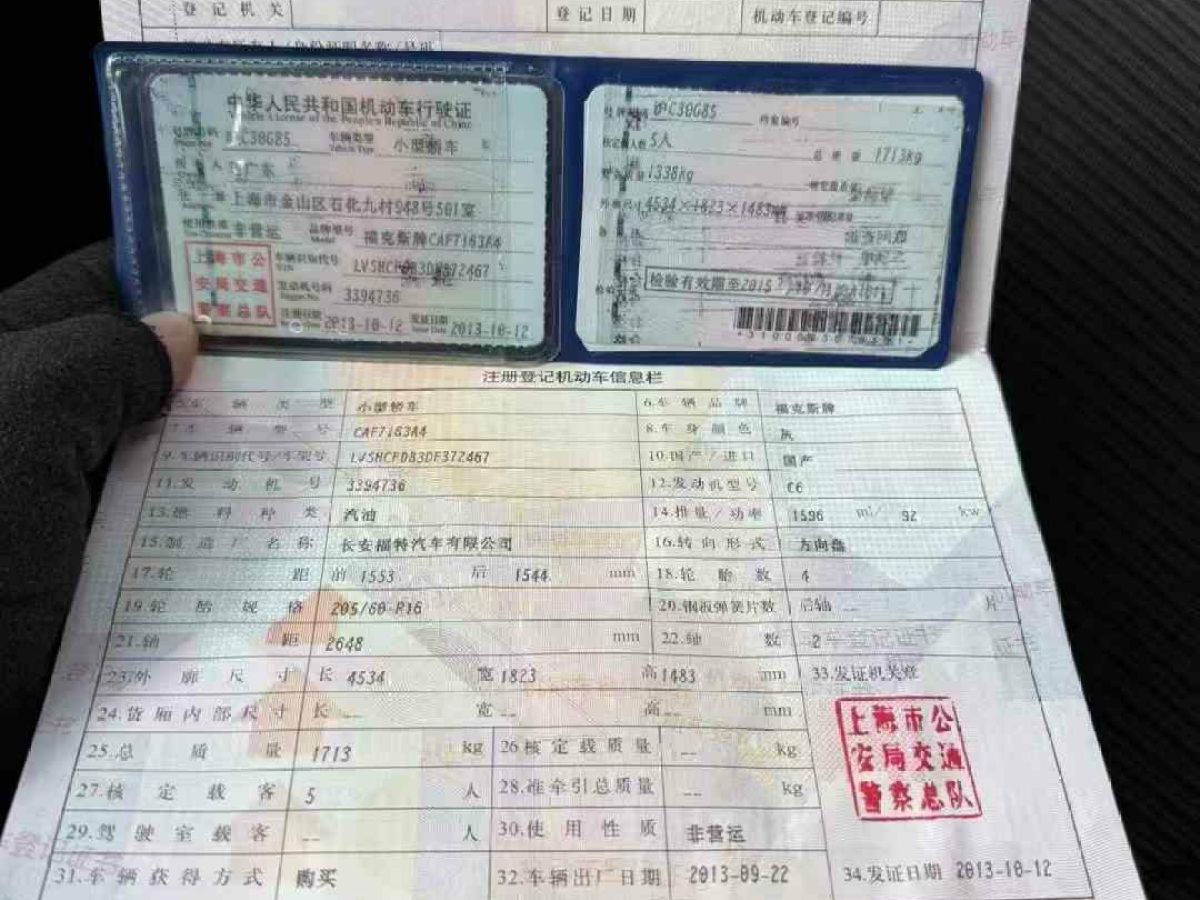 登记机关 登记日期 机动车登记编号
中华人民共和国机动车行驶证
Vehicle License of the People's Republic of China
号牌号码 沪C30G85 车辆类型 小型轿车
上海市金山区石化九村948号501室
使用性质 非营运 品牌型号 福克斯牌CAF7163A4
上海市公安局交通警察总队
车辆识别代号 LVSHCFDB3DF372467
发动机号码 3394736
注册日期 2013-10-12 发证日期 2013-10-12
号牌号码 沪C30G85 档案编号
核定载人数 5人 总质量 1713kg
整备质量 1338kg
外廓尺寸 4534×1823×1483mm
检验有效期至2015
注册登记机动车信息栏
5.车辆类型 小型轿车 6.车辆品牌 福克斯牌
7.车辆型号 CAF7163A4 8.车身颜色 灰
9.车辆识别代号/车架号 LVSHCFDB3DF372467 10.国产/进口 国产
11.发动机号 3394736 12.发动机型号 C6
13.燃料种类 汽油 14.排量/功率 1596 ml/ 92 kw
15.制造厂名称 长安福特汽车有限公司 16.转向形式 方向盘
17.轮距 前 1553 后 1544 mm 18.轮胎数 4
19.轮胎规格 205/60-R16 20.钢板弹簧片数 后轴 -- 片
21.轴距 2648 mm 22.轴数 2
23.外廓尺寸 长 4534 宽 1823 高 1483 mm 33.发证机关章
24.货厢内部尺寸 长 -- 宽 -- 高 -- mm
25.总质量 1713 kg 26.核定载质量 -- kg
上海市公安局交通警察总队
27.核定载客 5 人 28.准牵引总质量 -- kg
29.驾驶室载客 -- 人 30.使用性质 非营运
31.车辆获得方式 购买 32.车辆出厂日期 2013-09-22 34.发证日期 2013-10-12